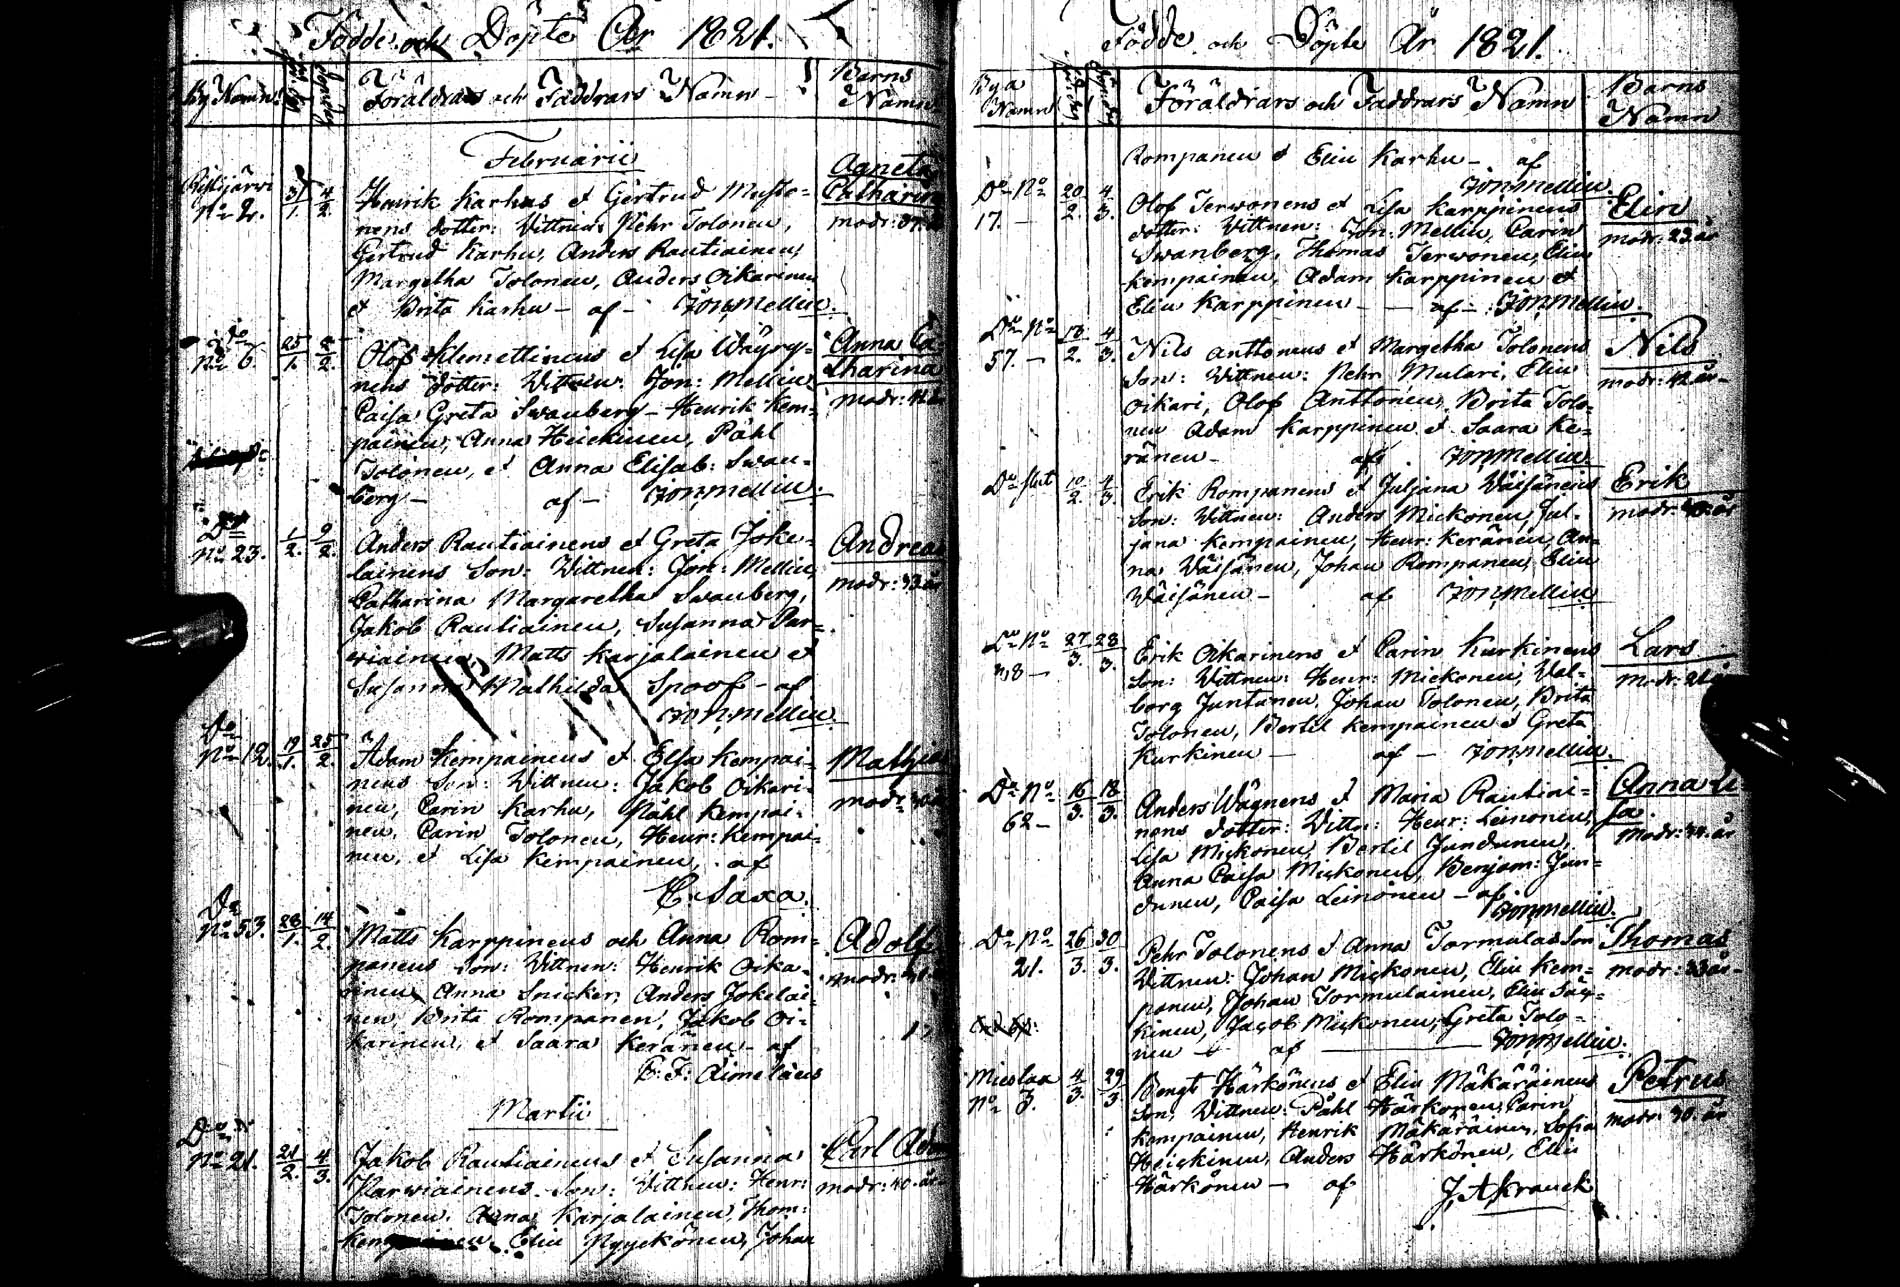 Födde och Döpte År 1821.
By Namn
Föräldrars och Faddrars Namn
Barns
Namn
Februarii
Ristijärvi
No 2.
31/1.
4/2.
Henrik Karhus et Gertrud Musto=
nens dotter: Wittnen: Pehr Tolonen,
Gertrud Karhu, Anders Rautiainen,
Margetha Tolonen, Anders Oikarinen
et Brita Karhu - af - Jon Mellin.
Agneta
Catharina
modr: 37
Do
No 6.
25/1.
Olof Klemettinens et Lisa Wäyry=
nens dotter: Wittnen: Jon: Mellin,
Caisa Greta Swanberg - Henrik Kem=
painen, Anna Heickinen, Påhl
Tolonen, et Anna Elisab: Swan=
berg - af - Jon Mellin.
Anna Ca=
tharina
modr: 42
Do
No 23.
1/2.
9/2.
Anders Rautiainens et Greta Joke=
lainens Son: Wittnen: Jon: Mellin,
Catharina Margaretha Swanberg,
Jakob Rautiainen, Susanna Par=
wiainen, Matts Karjalainen et
Susanna Mathilda Spoof - af
Jon Mellin.
Andreas
modr: 33 år
Do
No 12.
19/1.
25/2
Adam Kempainens et Elsa Kempai=
nens Son: Wittnen: Jakob Oikari=
nen, Carin Karhu, Påhl Kempai=
nen, Carin Tolonen, Henr: Kempai=
nen, et Lisa Kempainen, af
C. Saxa.
Mathias
modr: 30
Do
No 53.
28/1.
14/2.
Matts Karppinens och Anna Rom=
panens Son: Wittnen: Henrik Oika=
rinen, Anna Snicker, Anders Jokelai=
nen, Brita Rompanen, Jakob Oi=
karinen, et Saara Keränen - af
F: F: Aimelæus
Adolf
modr:
Martii
Do
No 21.
21/2.
4/3.
Jakob Rautiainens et Susanna
Parwiainens Son: Wittnen: Henr:
Tolonen, Anna Karjalainen, Thom:
Elin Pyyckönen, Johan
Carl Adam
modr: 40 år
Födde och Döpte År 1821.
Bya
Namn
Föräldrars och Faddrars Namn
Barns
Namn
Rompanen et Elin Karhu - af
Jon Mellin.
Do No
17. -
20/2.
4/3.
Olof Terwonens et Lisa Karppinens
dotter: Wittnen: Jon: Mellin, Carin
Swanberg, Thomas Terwonen, Elin
Kempainen, Adam Karppinen et
Elin Karppinen - - af - Jon Mellin.
Elin
modr: 23 år
Do No
57. -
18/2.
4/3.
Nils Anttonens et Margetha Tolonens
Son: Wittnen: Pehr Mulari, Elin
Oikari, Olof Anttonen, Brita Tolo=
nen Adam Karppinen et Saara Ke=
ränen - af Jon Mellin.
Nils
modr: 42 år -
Do
10/2.
4/3.
Erik Rompanens et Juljana Wäisänens
Son: Wittnen: Anders Mickonen, Jul=
jana Kempainen, Henr: Keränen, An=
na Wäisänen, Johan Rompanen, Elin
Wäisänen - af Jon Mellin
Erik
modr: år
Do No
8 -
27/3.
28/3.
Erik Oikarinens et Carin Kurkinens
Son: Wittnen: Henr: Mickonen, Wal=
borg Juntunen, Johan Tolonen, Brita
Tolonen, Bertil Kempainen et Greta
Kurkinen - af - Jon Mellin.
Lars
modr: 21
Do No
62 -
16/3.
18/3.
Anders Wägnens et Maria Rautiai=
nens dotter: Wittn: Henr: Leinonen,
Lisa Mickonen, Bertil Jundunen,
Anna Caisa Mickonen, Benjam: Jun=
dunen, Caisa Leinonen - af
Jon Mellin.
Anna Li
sa.
modr: 34 år
Do No
21.
26/3.
30/3.
Pehr Tolonens et Anna Tormulas Son
Wittnen: Johan Mickonen, Elin Kem=
panen, Johan Tormulainen, Elin Säy=
kinen, Jacob Mickonen, Greta Tolo=
nen - af - Jon Mellin.
Thomas
modr: 33 år -
Mieslax
No 3.
4/3.
29/3
Bengt Härkönens et Elin Mäkäräinens
Son, Wittnen: Påhl Härkönen, Carin
Kempainen, Henrik Mäkäräinen, Sofia
Heickinen, Anders Härkönen, Elin
Härkönen - af
J. A. Franck
Petrus
modr: 30. år